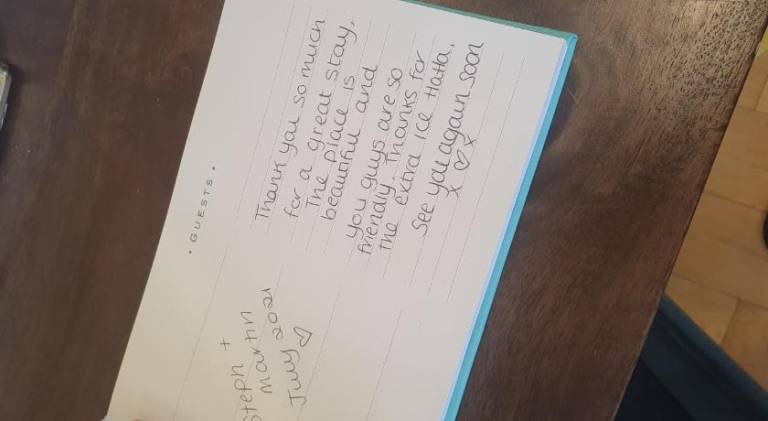 • GUESTS •
Steph +
Martin
July 2021
♡
Thank you so much
for a great stay.
The place is
beautiful and
you guys are so
friendly. Thanks for
the extra ice Hatta.
See you again soon
x ♡ x